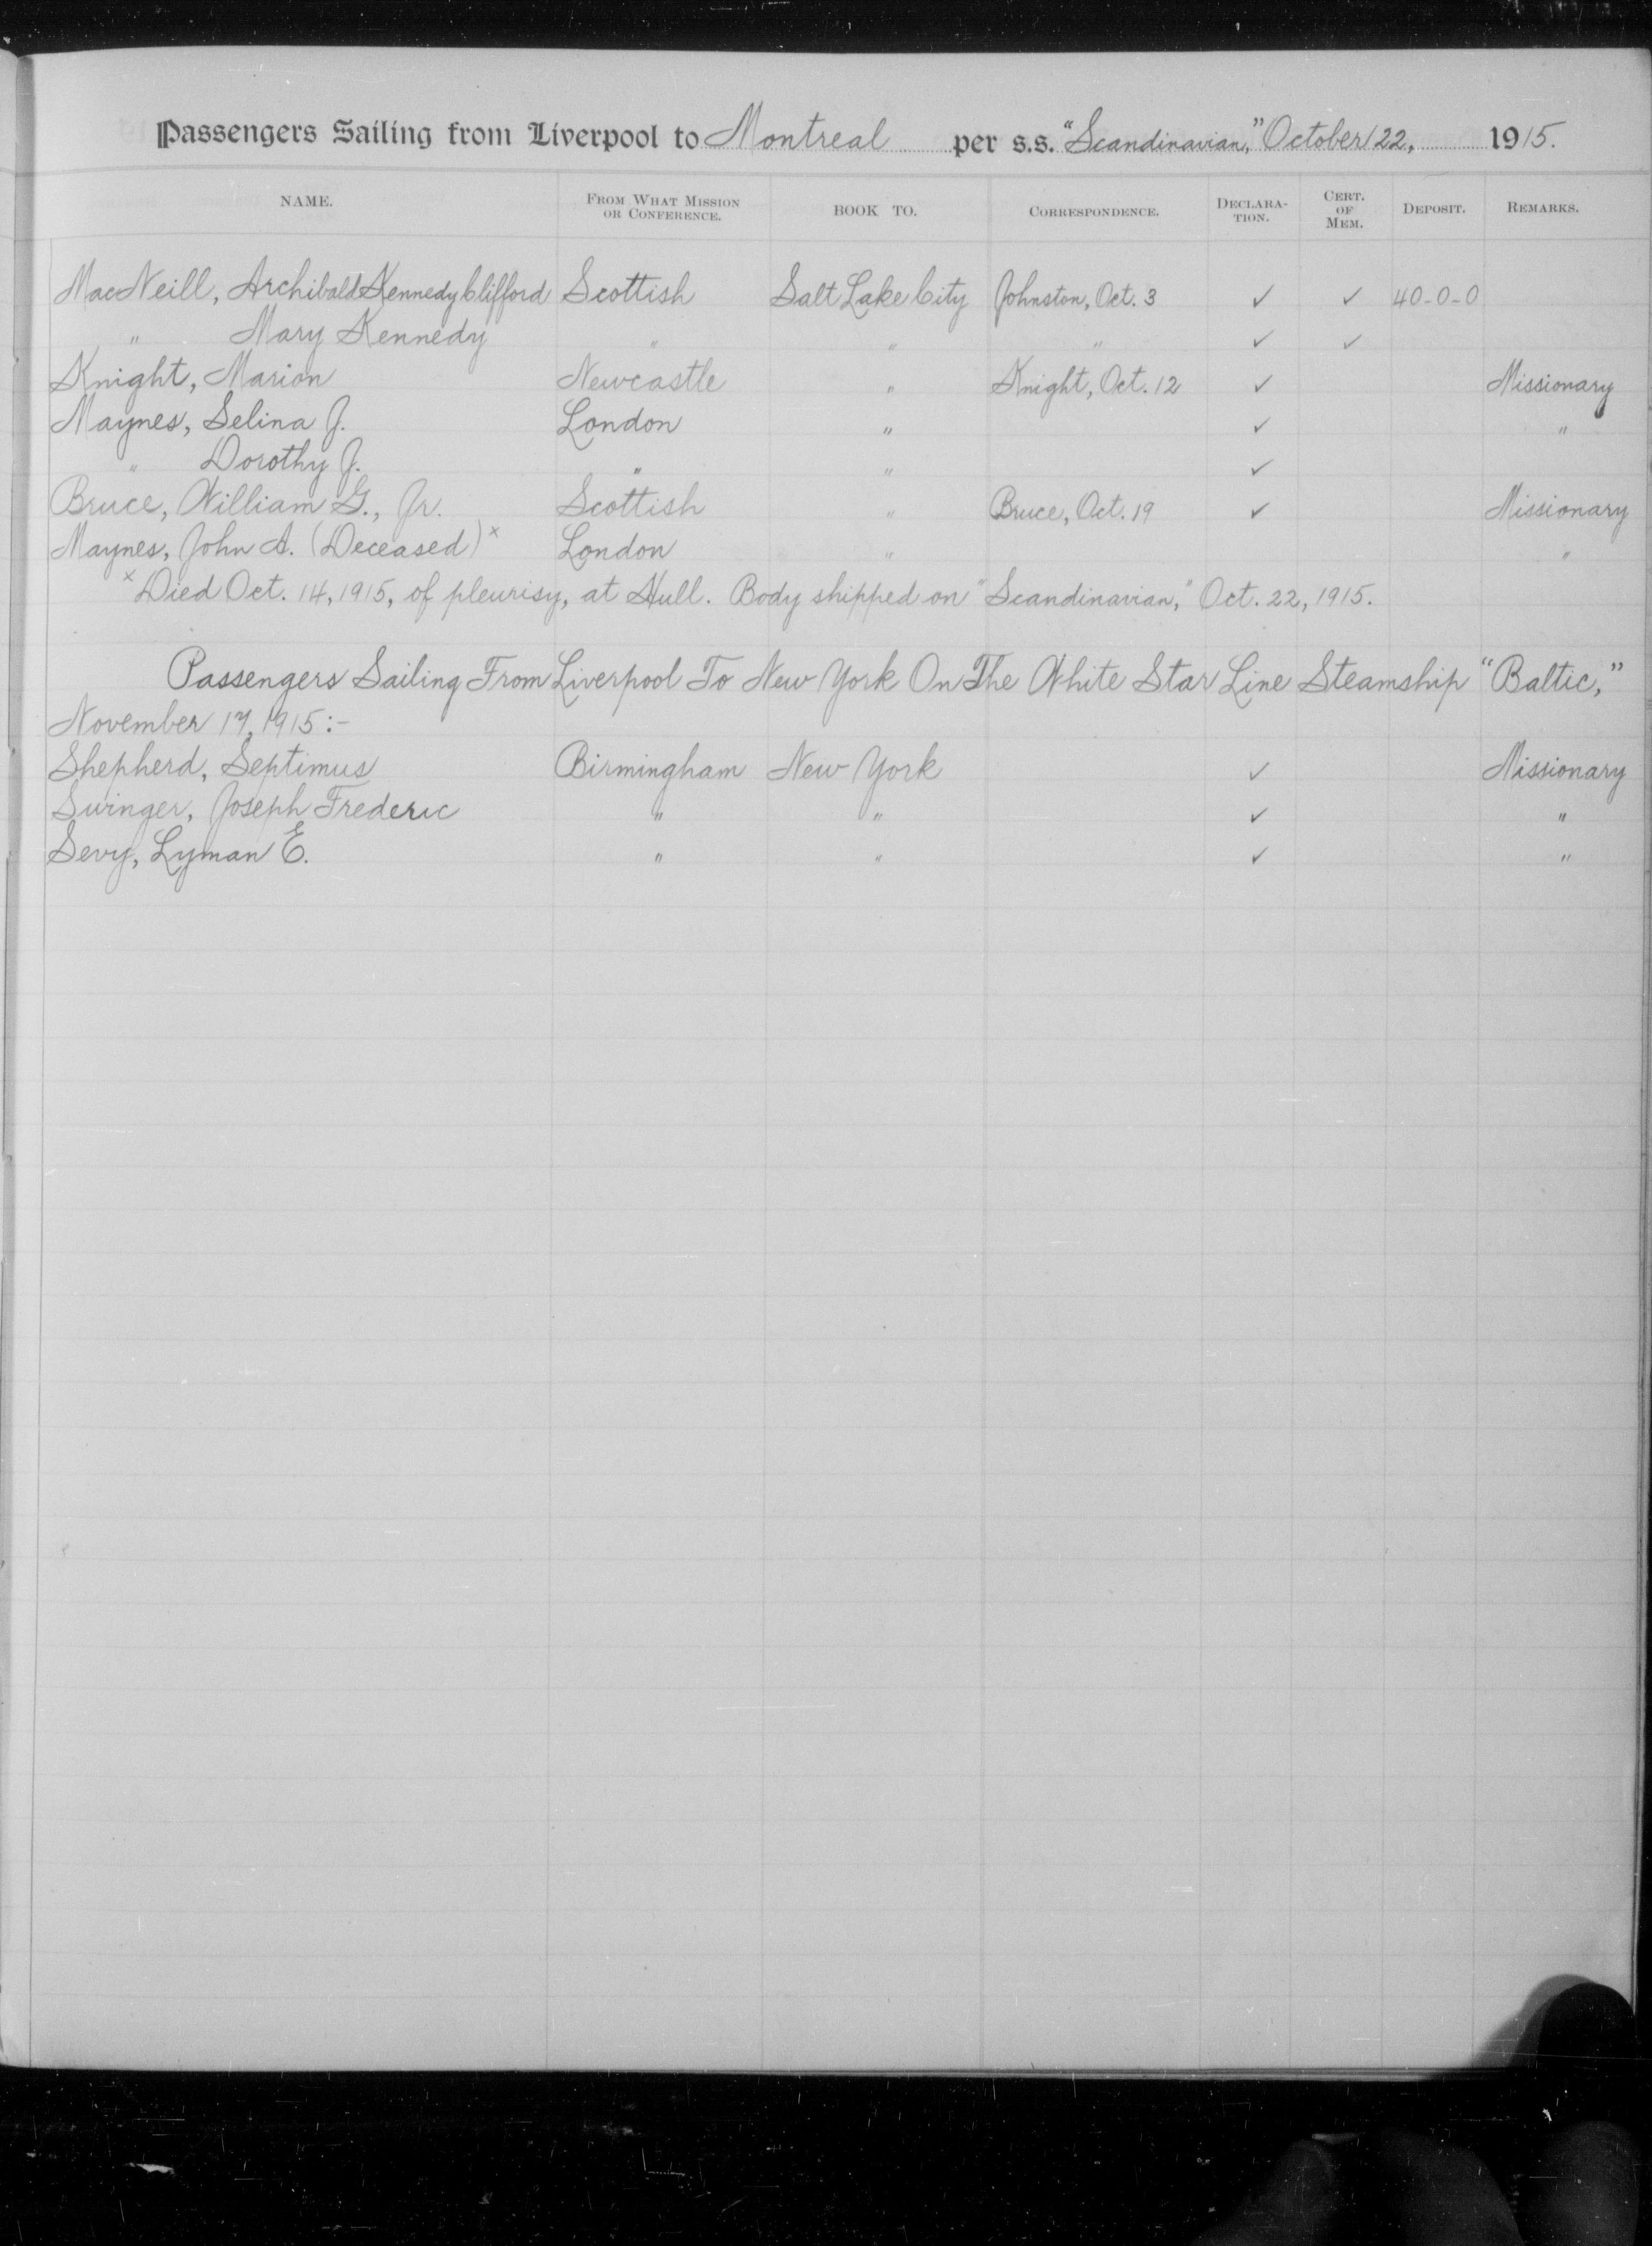 Passengers Sailing from Liverpool to Montreal per s.s. "Scandinavian," October 22, 1915.
NAME. FROM WHAT MISSION OR CONFERENCE. BOOK TO. CORRESPONDENCE. DECLARA-TION. CERT. OF MEM. DEPOSIT. REMARKS.
MacNeill, Archibald Kennedy Clifford Scottish Salt Lake City Johnston, Oct. 3 ✓ ✓ 40-0-0
" Mary Kennedy " " " ✓ ✓
Knight, Marion Newcastle " Knight, Oct. 12 ✓ Missionary
Maynes, Selina J. London " ✓ "
" Dorothy J. " " ✓
Bruce, William G., Jr. Scottish " Bruce, Oct. 19 ✓ Missionary
Maynes, John A. (Deceased) x London " "
x Died Oct. 14, 1915, of pleurisy, at Hull. Body shipped on "Scandinavian," Oct. 22, 1915.
Passengers Sailing From Liverpool To New York On The White Star Line Steamship "Baltic,"
November 17, 1915:-
Shepherd, Septimus Birmingham New York ✓ Missionary
Swinger, Joseph Frederic " " ✓ "
Sevy, Lyman E. " " ✓ "